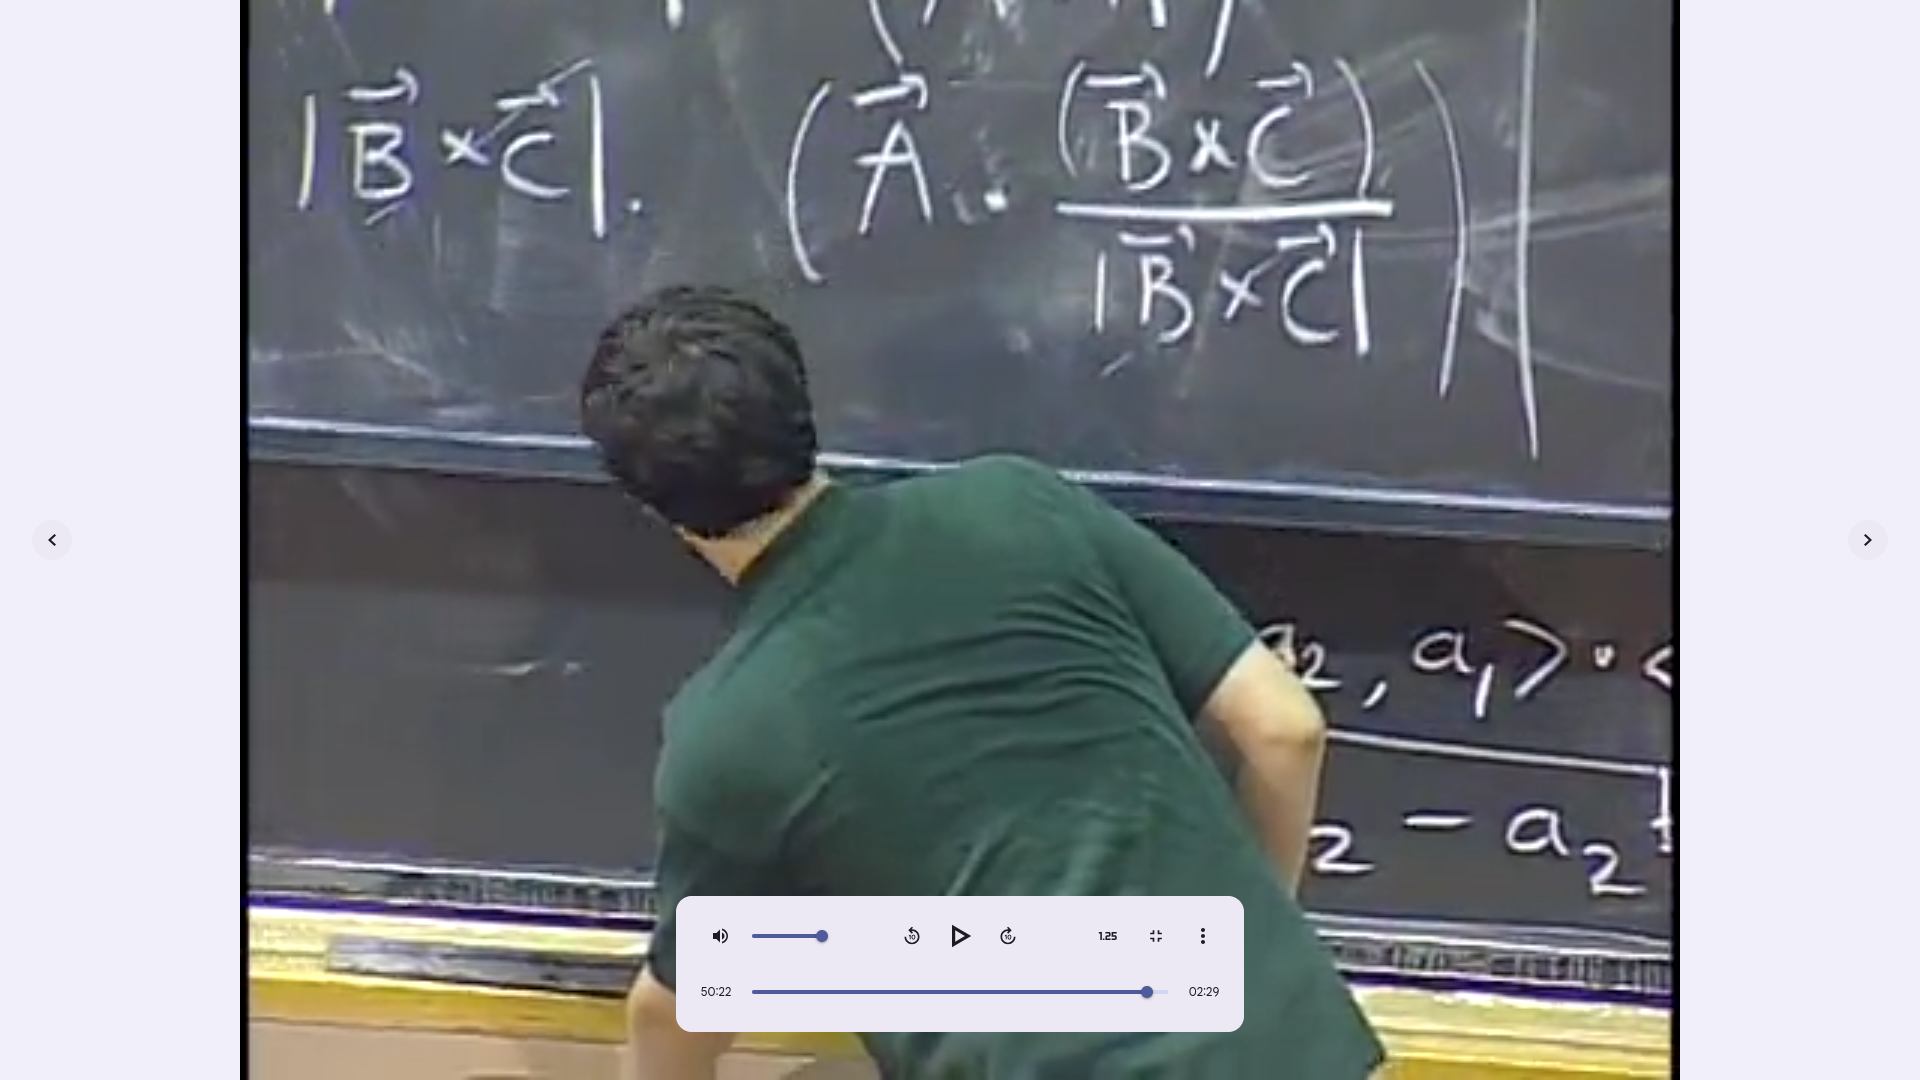 |B⃗ × C⃗| . (A⃗ · (B⃗ × C⃗)
|B⃗ × C⃗| )
a₂, a₁⟩ · ⟨
₂ − a₂
1.25
50:22 02:29